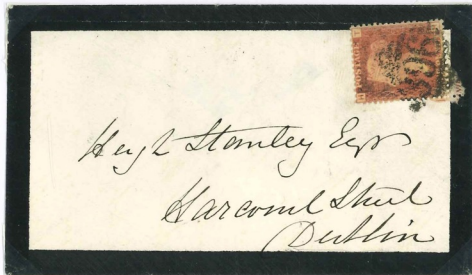 Hugh Stanley Esqr
Harcourt Street
Dublin
POSTAGE